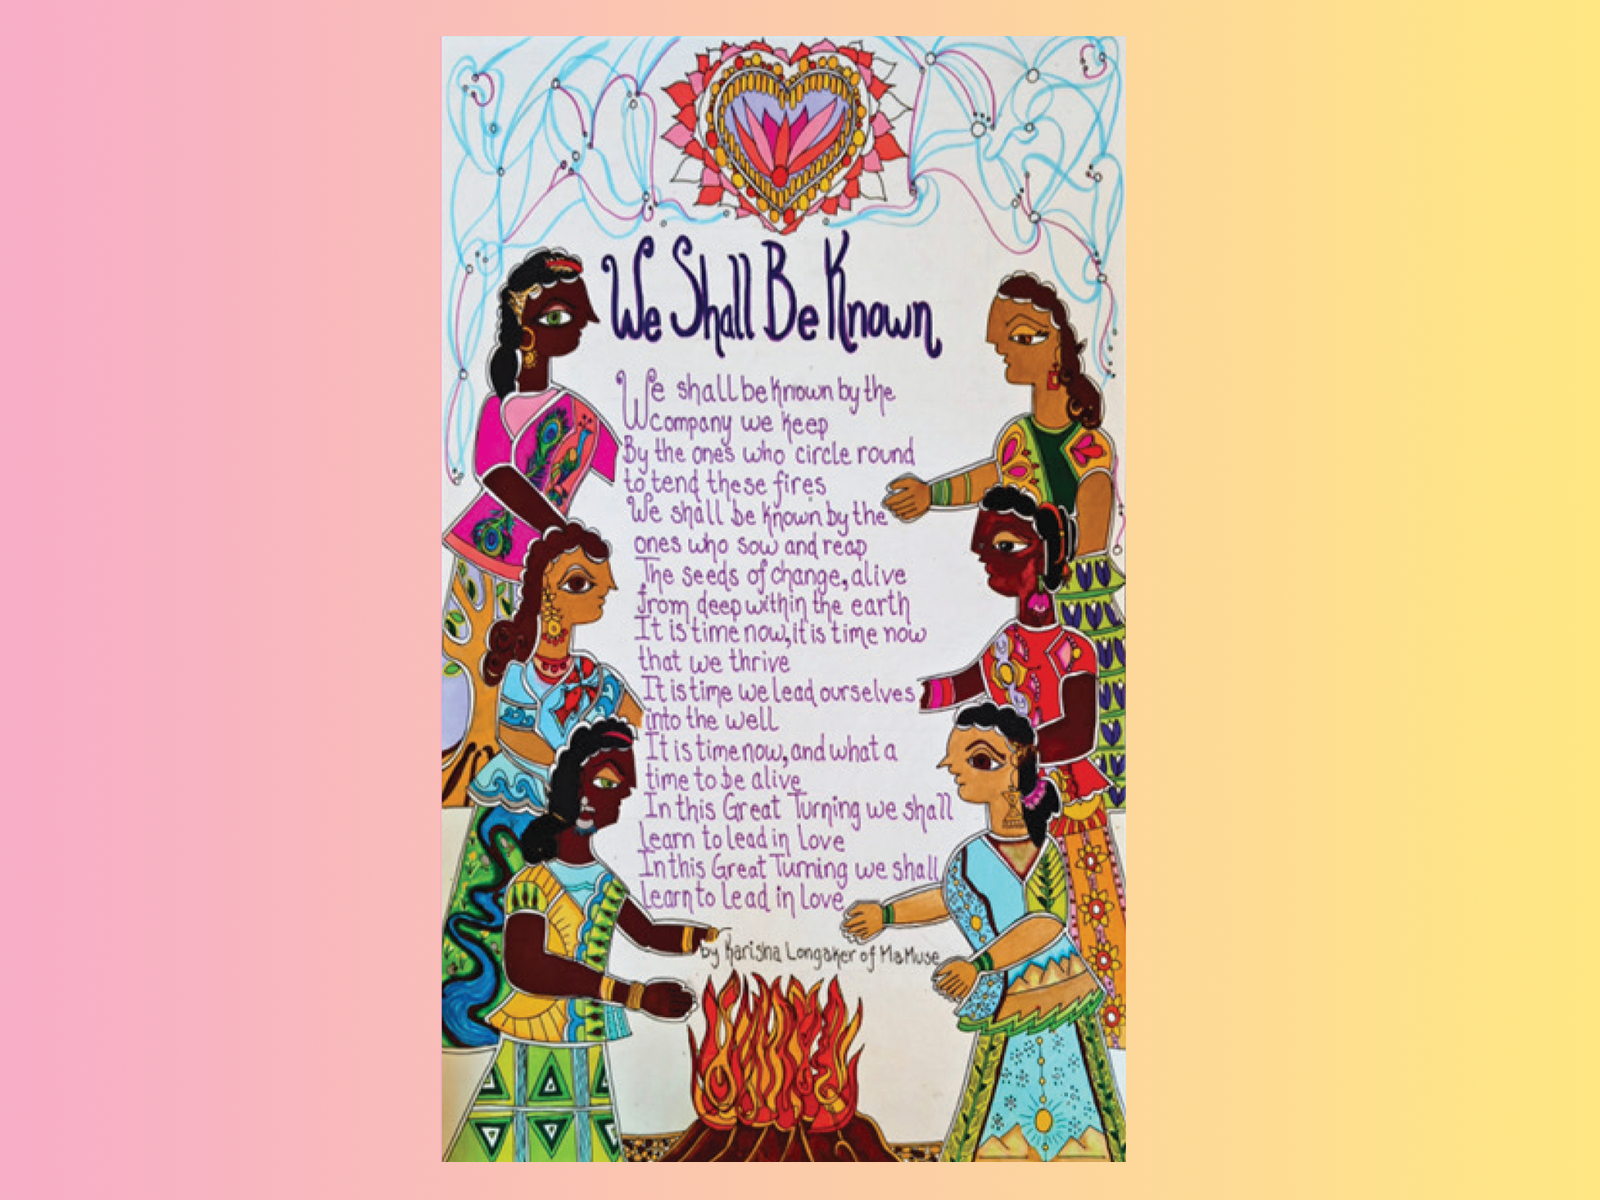 We Shall Be Known
We shall be known by the
company we keep
By the ones who circle round
to tend these fires
We shall be known by the
ones who sow and reap
The seeds of change, alive
from deep within the earth
It is time now, it is time now
that we thrive
It is time we lead ourselves
into the well
It is time now, and what a
time to be alive
In this Great Turning we shall
learn to lead in love
In this Great Turning we shall
learn to lead in love
by Karisha Longaker of MaMuse